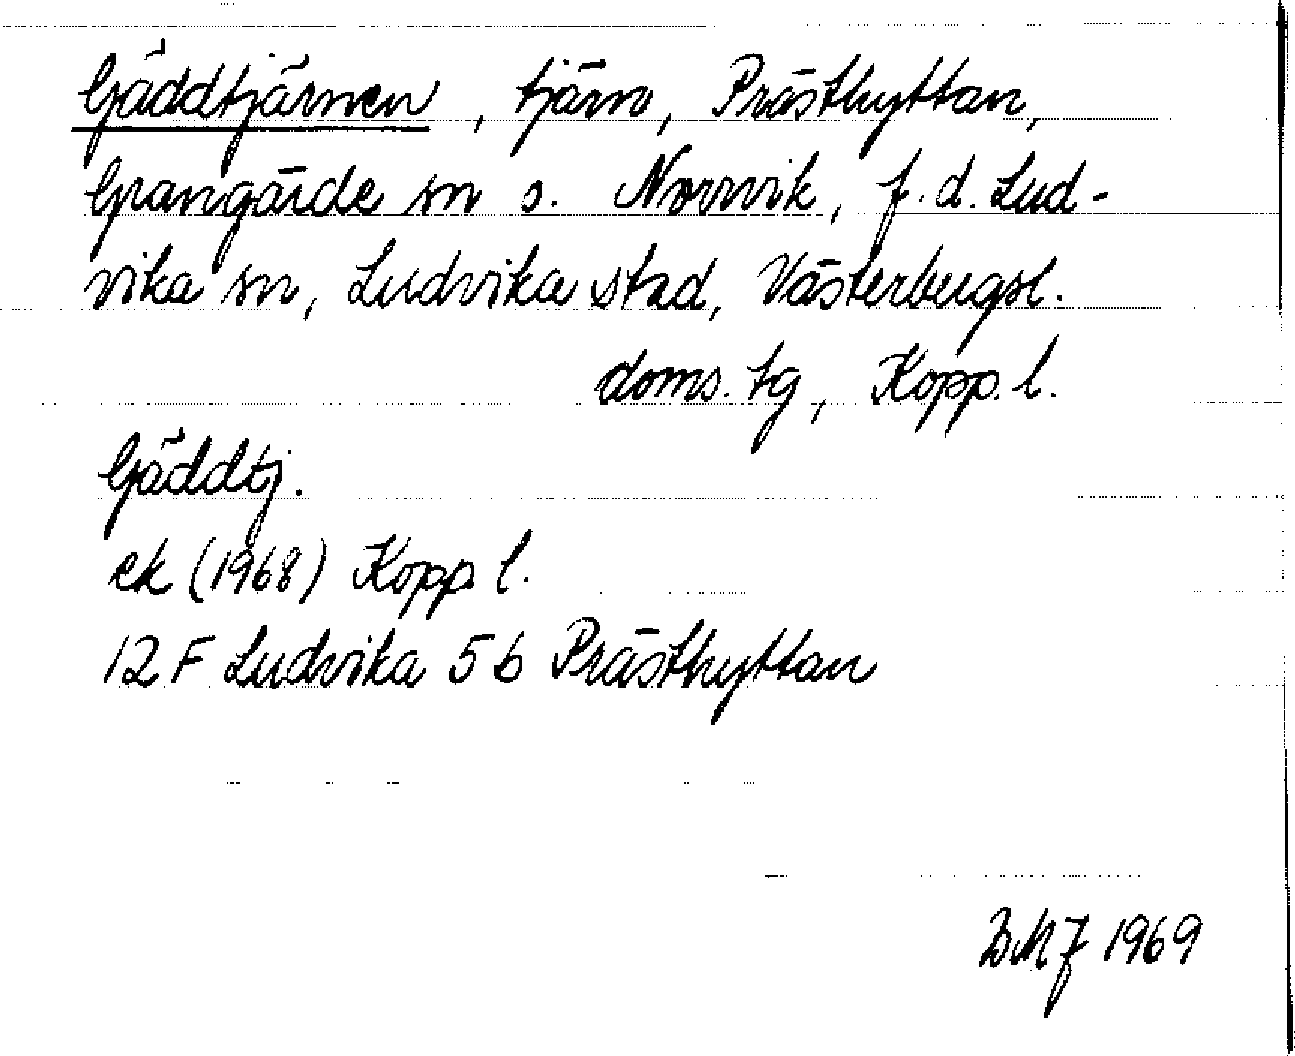 Gäddtjärnen, tjärn, Prästhyttan,
Grangärde sn o. Norrvik, f.d. Lud-
vika sn, Ludvika stad, Västerbergsl.
doms. tg, Kopp. l.
Gäddtj.
ek (1968) Kopp l.
12 F Ludvika 5 b Prästhyttan
BMJ 1969